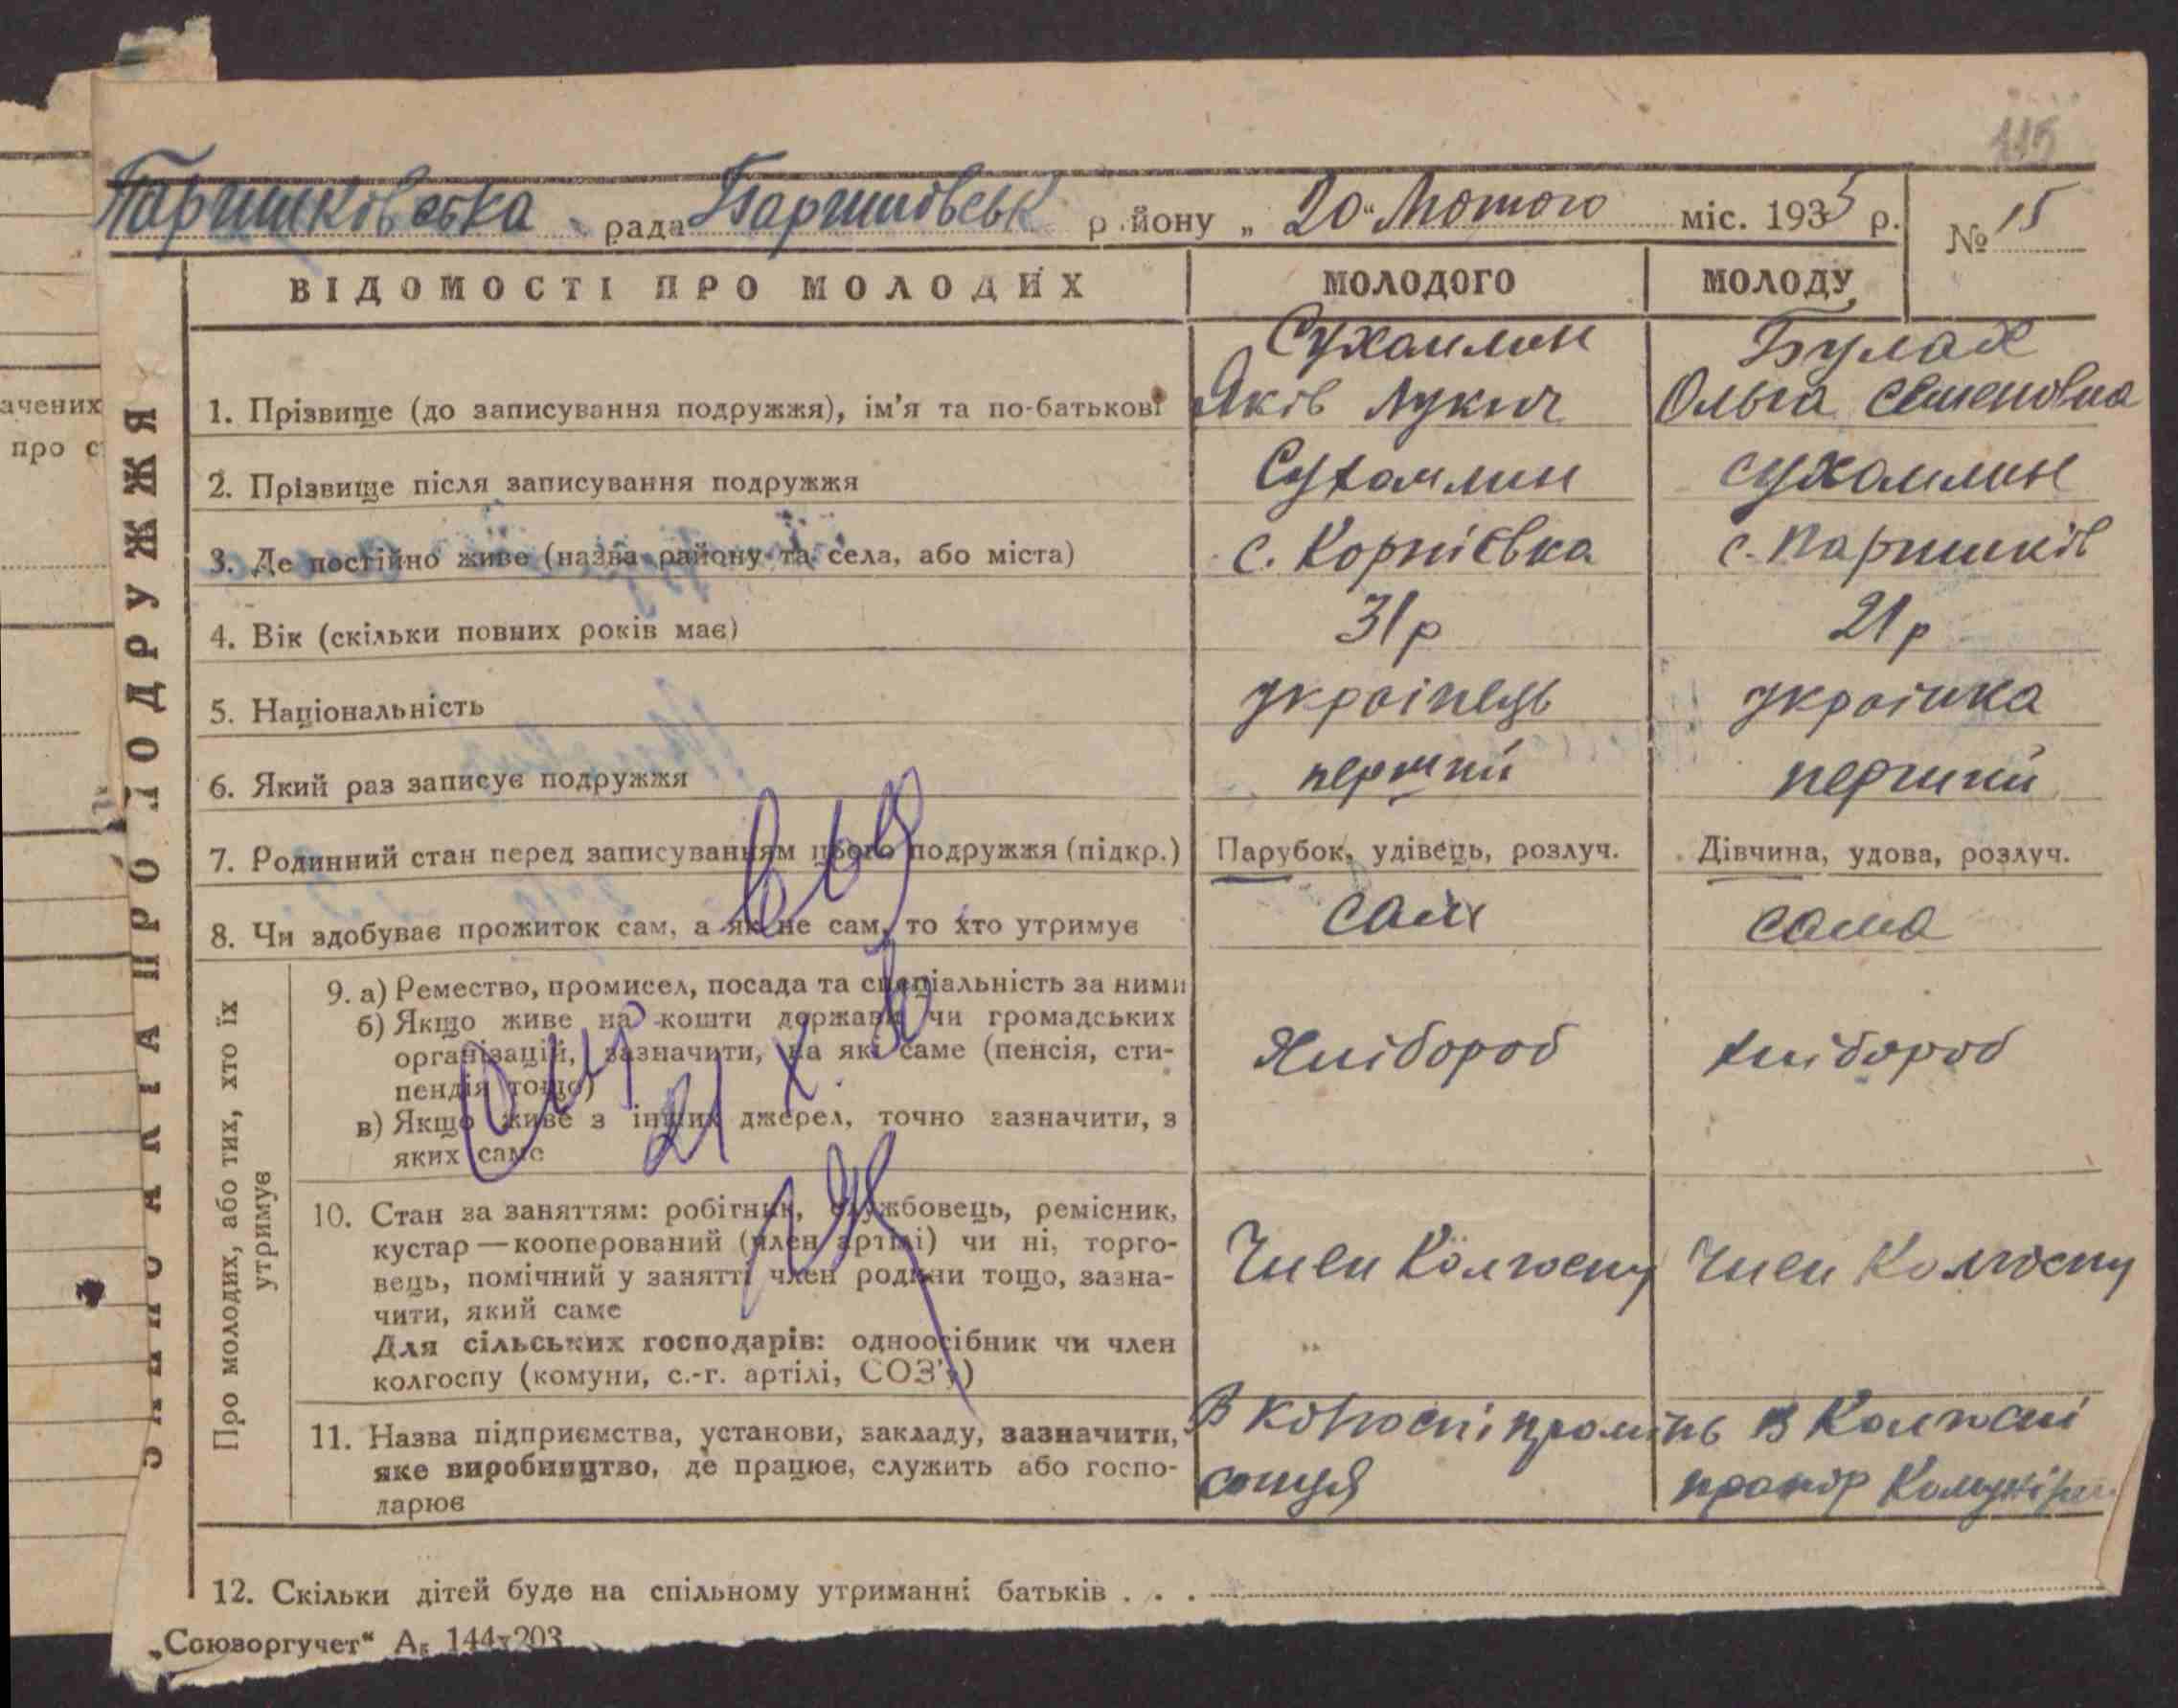 115
Паришківська рада Баришівськ району „ 20 “ Лютого міс. 1935 р. № 15
ЗАПИС АКТА ПРО ПОДРУЖЖЯ
ВІДОМОСТІ ПРО МОЛОДИХ МОЛОДОГО МОЛОДУ
Сухамлин Булах
1. Прізвище (до записування подружжя), ім'я та по-батькові Яків Лукич Ольга Семеновна
2. Прізвище після записування подружжя Сухамлин Сухамлин
3. Де постійно живе (назва району та села, або міста) с. Корнієвка с. Паришків
4. Вік (скільки повних років має) 31 р 21 р
5. Національність українець українка
6. Який раз записує подружжя перший перший
7. Родинний стан перед записуванням цього подружжя (підкр.) Парубок, удівець, розлуч. Дівчина, удова, розлуч.
8. Чи здобуває прожиток сам, а як не сам, то хто утримує сам сама
Про молодих, або тих, хто їх
утримує
9. а) Ремество, промисел, посада та спеціальність за ними
б) Якщо живе на кошти держави чи громадських
організацій, зазначити, на які саме (пенсія, сти-
пендія тощо) Хлібороб хлібороб
в) Якщо живе з інших джерел, точно зазначити, з
яких саме
10. Стан за заняттям: робітник, службовець, ремісник,
кустар—кооперований (член артілі) чи ні, торго-
вець, помічний у занятті член родини тощо, зазна- Член Колгоспу Член Колгоспу
чити, який саме
Для сільських господарів: одноосібник чи член
колгоспу (комуни, с.-г. артілі, СОЗ'у)
11. Назва підприємства, установи, закладу, зазначити, В колгоспі промінь В Колгоспі
яке виробництво, де працює, служить або госпо- сонця прапор
дарює
12. Скільки дітей буде на спільному утриманні батьків . . .
„Союзоргучет“ А5 144x203
ачених
про с